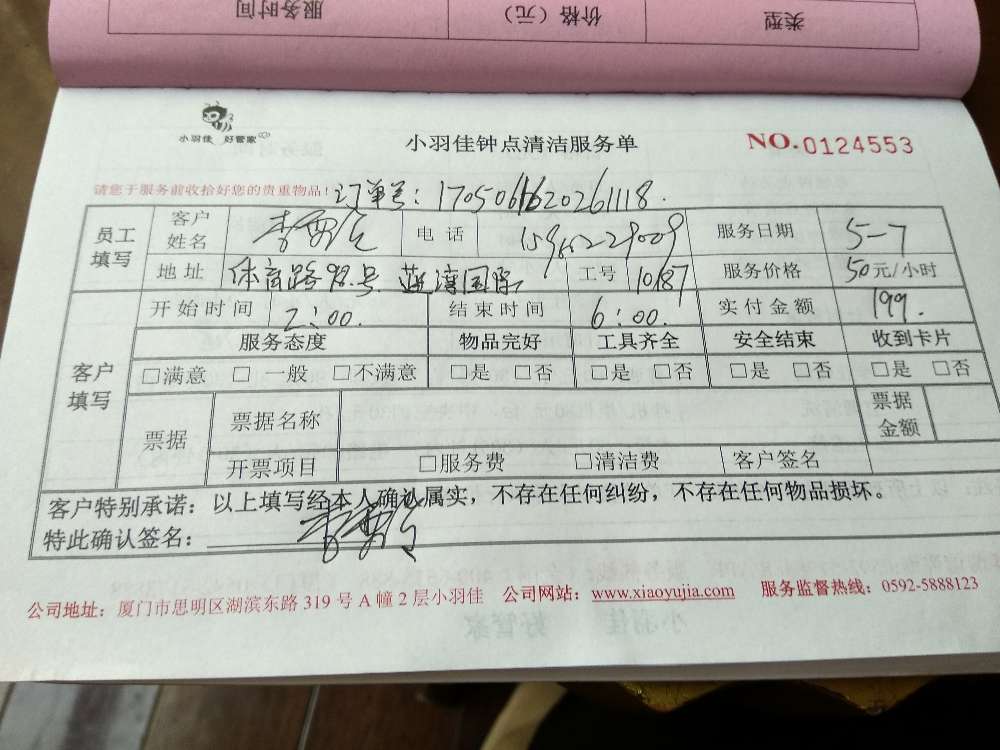 类型 价格（元） 服务时间
小羽佳 好管家
小羽佳钟点清洁服务单
NO.0124553
请您于服务前收拾好您的贵重物品！订单号：1705061620261118.
员工填写 客户姓名 李 电话 服务日期 5-7
地址 体育路98号 莲湾国际 工号 10187 服务价格 50元/小时
开始时间 2:00. 结束时间 6:00. 实付金额 199.
客户填写 服务态度 物品完好 工具齐全 安全结束 收到卡片
□满意 □一般 □不满意 □是 □否 □是 □否 □是 □否 □是 □否
票据 票据名称 票据金额
开票项目 □服务费 □清洁费 客户签名
客户特别承诺：以上填写经本人确认属实，不存在任何纠纷，不存在任何物品损坏。
特此确认签名：李
公司地址：厦门市思明区湖滨东路319号A幢2层小羽佳 公司网站：www.xiaoyujia.com 服务监督热线：0592-5888123